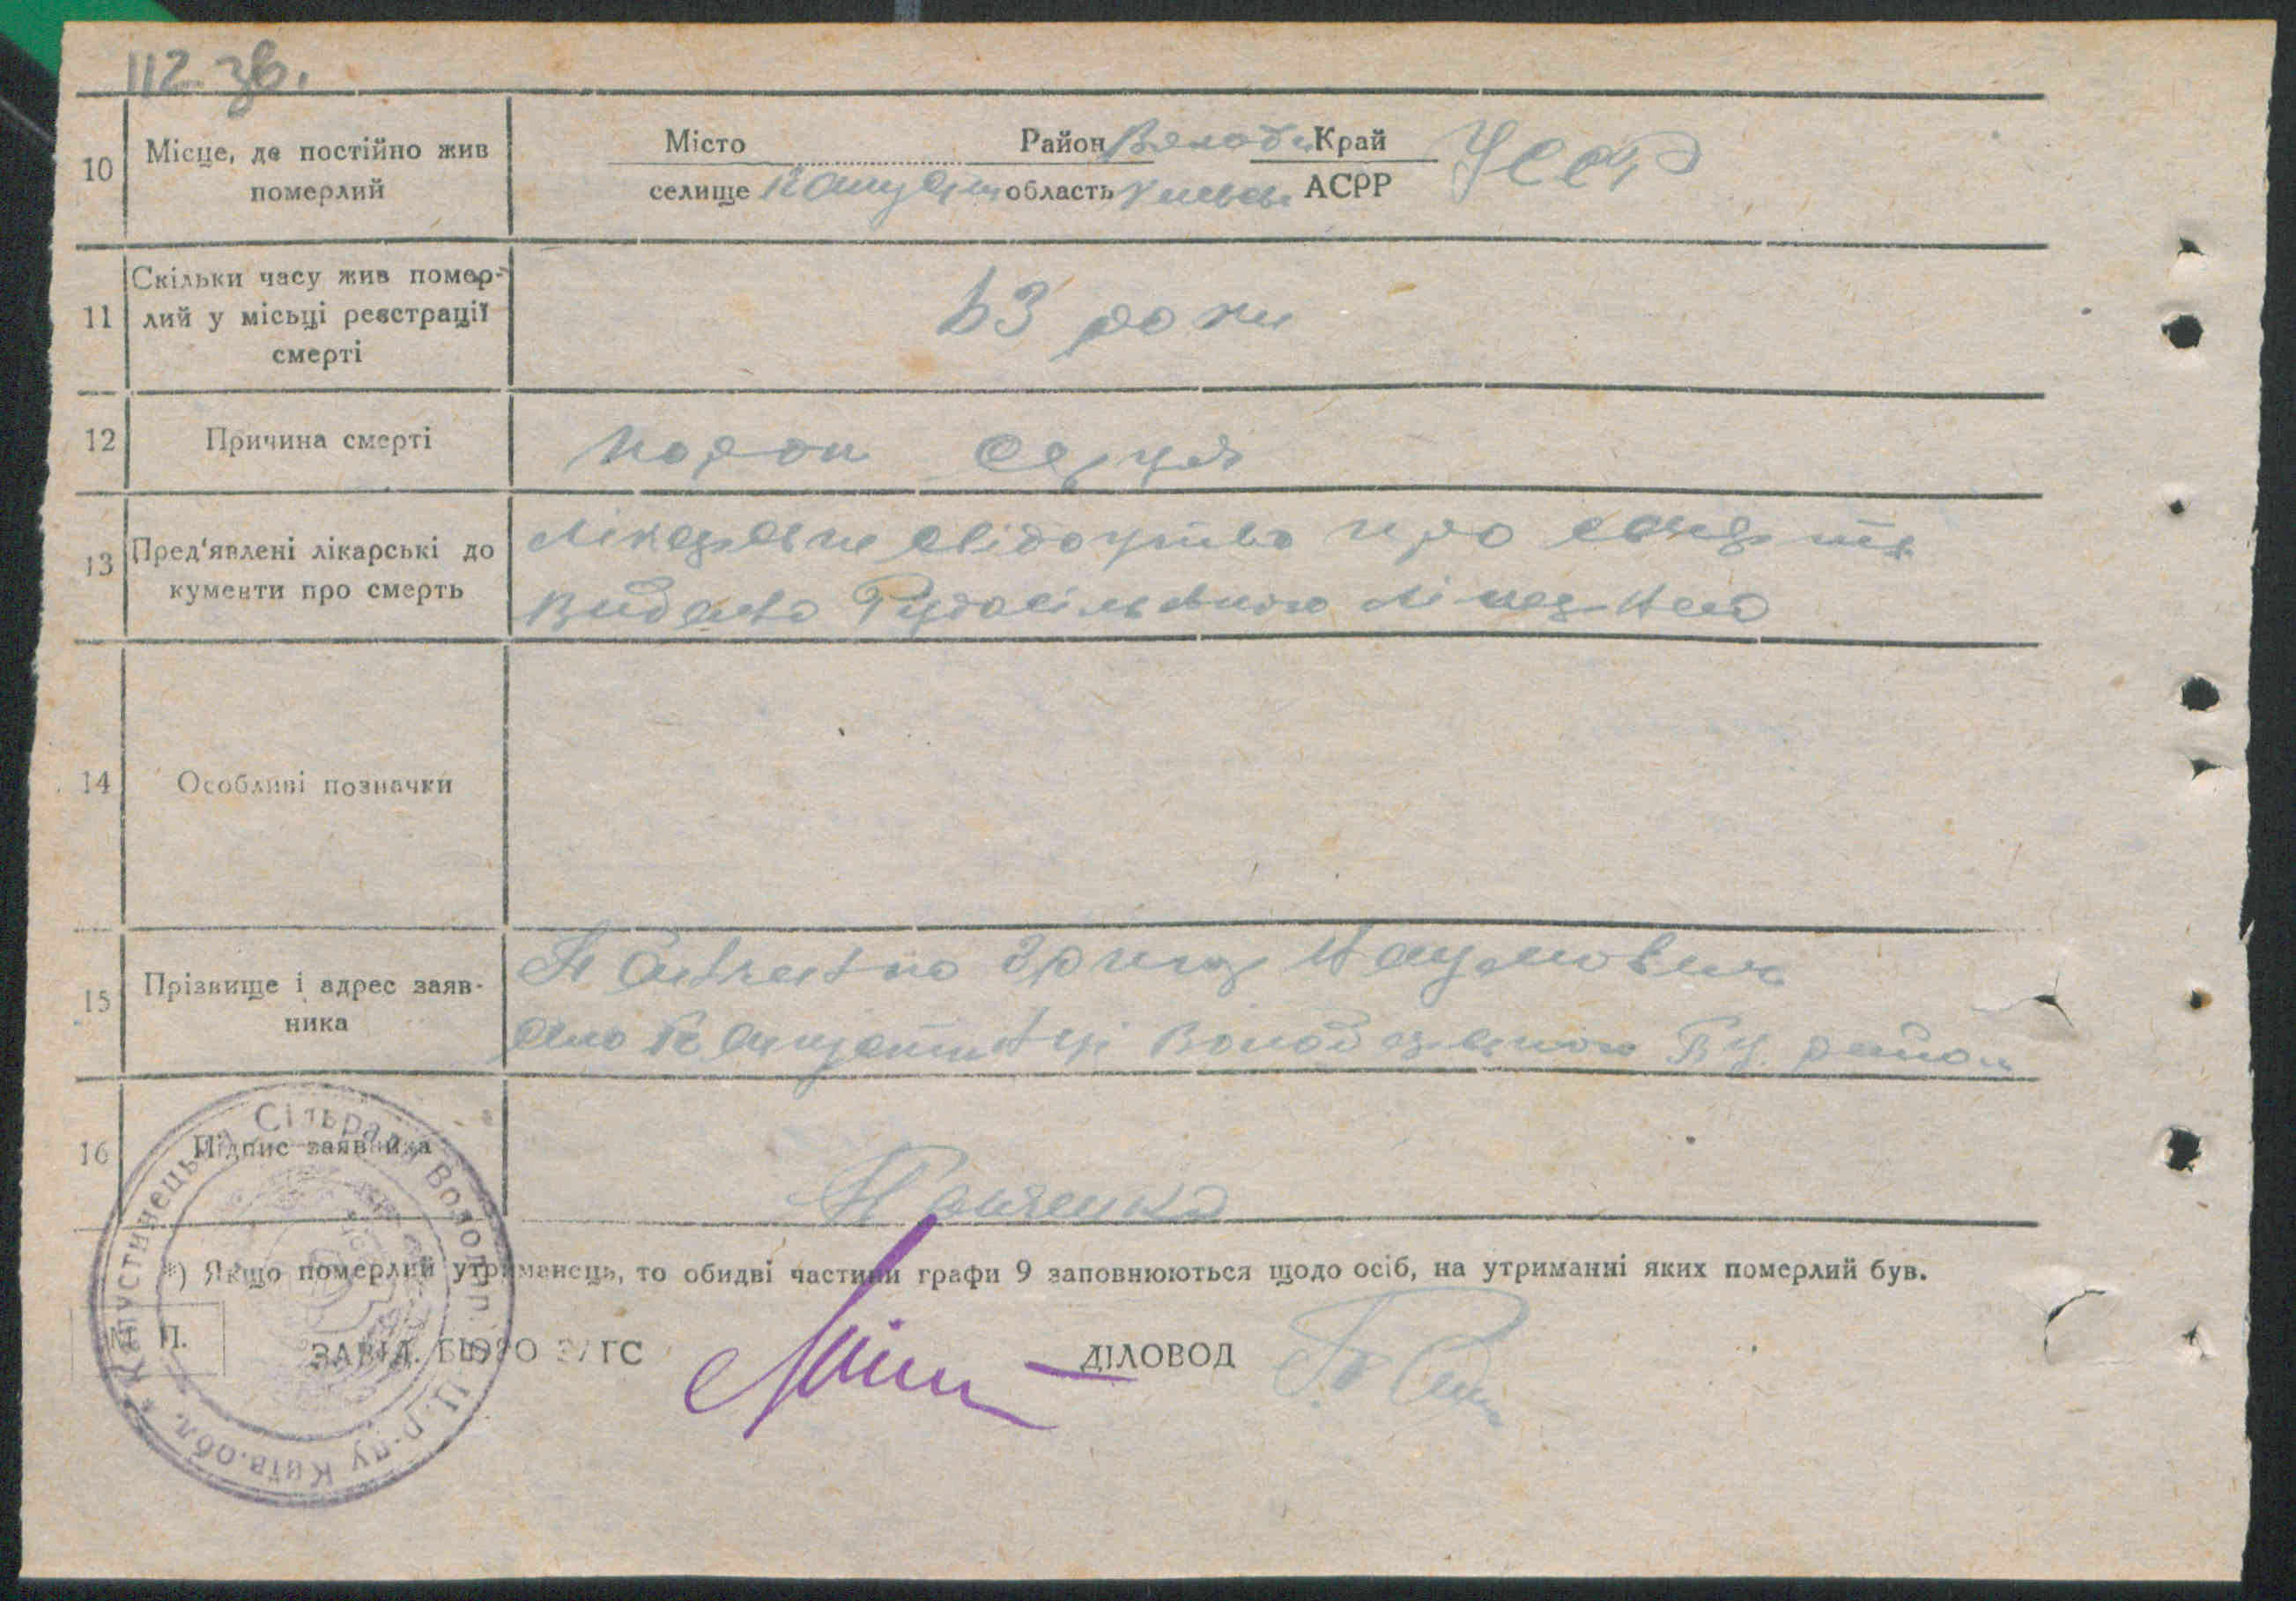 112 зв.
10 Місце, де постійно жив померлий
Місто Район Волод Край УССР
селище область Київськ АСРР
11 Скільки часу жив помер-
лий у місьці реєстрації
смерті
63 роки
12 Причина смерті
порок серця
13 Пред'явлені лікарські до
кументи про смерть
Лікарське свідоцтво про смерть
видано Рудосільською лікарнею
14 Особливі позначки
15 Прізвище і адрес заяв-
ника
Наумович
село Капустинці Володарського району
16 Підпис заявника
*) Якщо померлий утриманець, то обидві частини графи 9 заповнюються щодо осіб, на утриманні яких померлий був.
М. П.
ЗАВІД. БЮРО ЗАГС ДІЛОВОД
Капустинецька Сільрада Володар. Ц. р-ну Київ. обл.